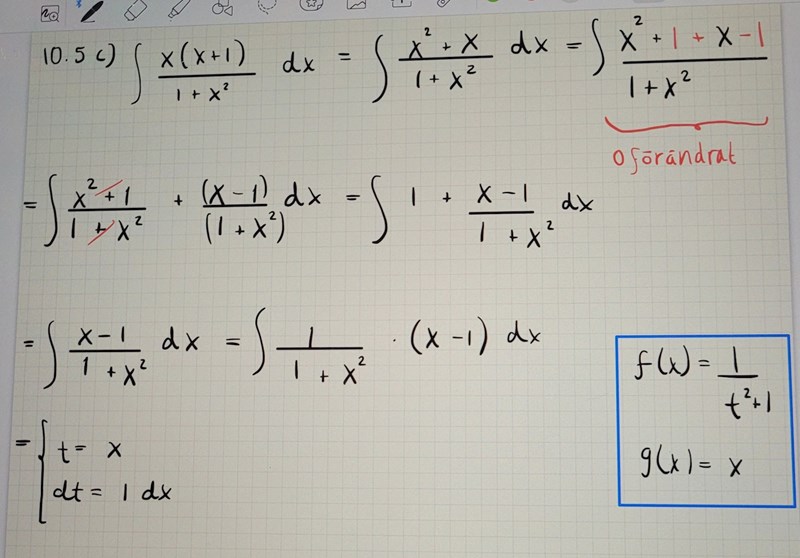 10.5 c) ∫ x(x+1) / 1 + x² dx = ∫ x² + x / 1 + x² dx = ∫ x² + 1 + x - 1 / 1 + x²
oförändrat
= ∫ x² + 1 / 1 + x² + (x-1) / (1 + x²) dx = ∫ 1 + x - 1 / 1 + x² dx
= ∫ x-1 / 1 + x² dx = ∫ 1 / 1 + x² · (x-1) dx
f(x) = 1 / t²+1
= { t = x
g(x) = x
dt = 1 dx